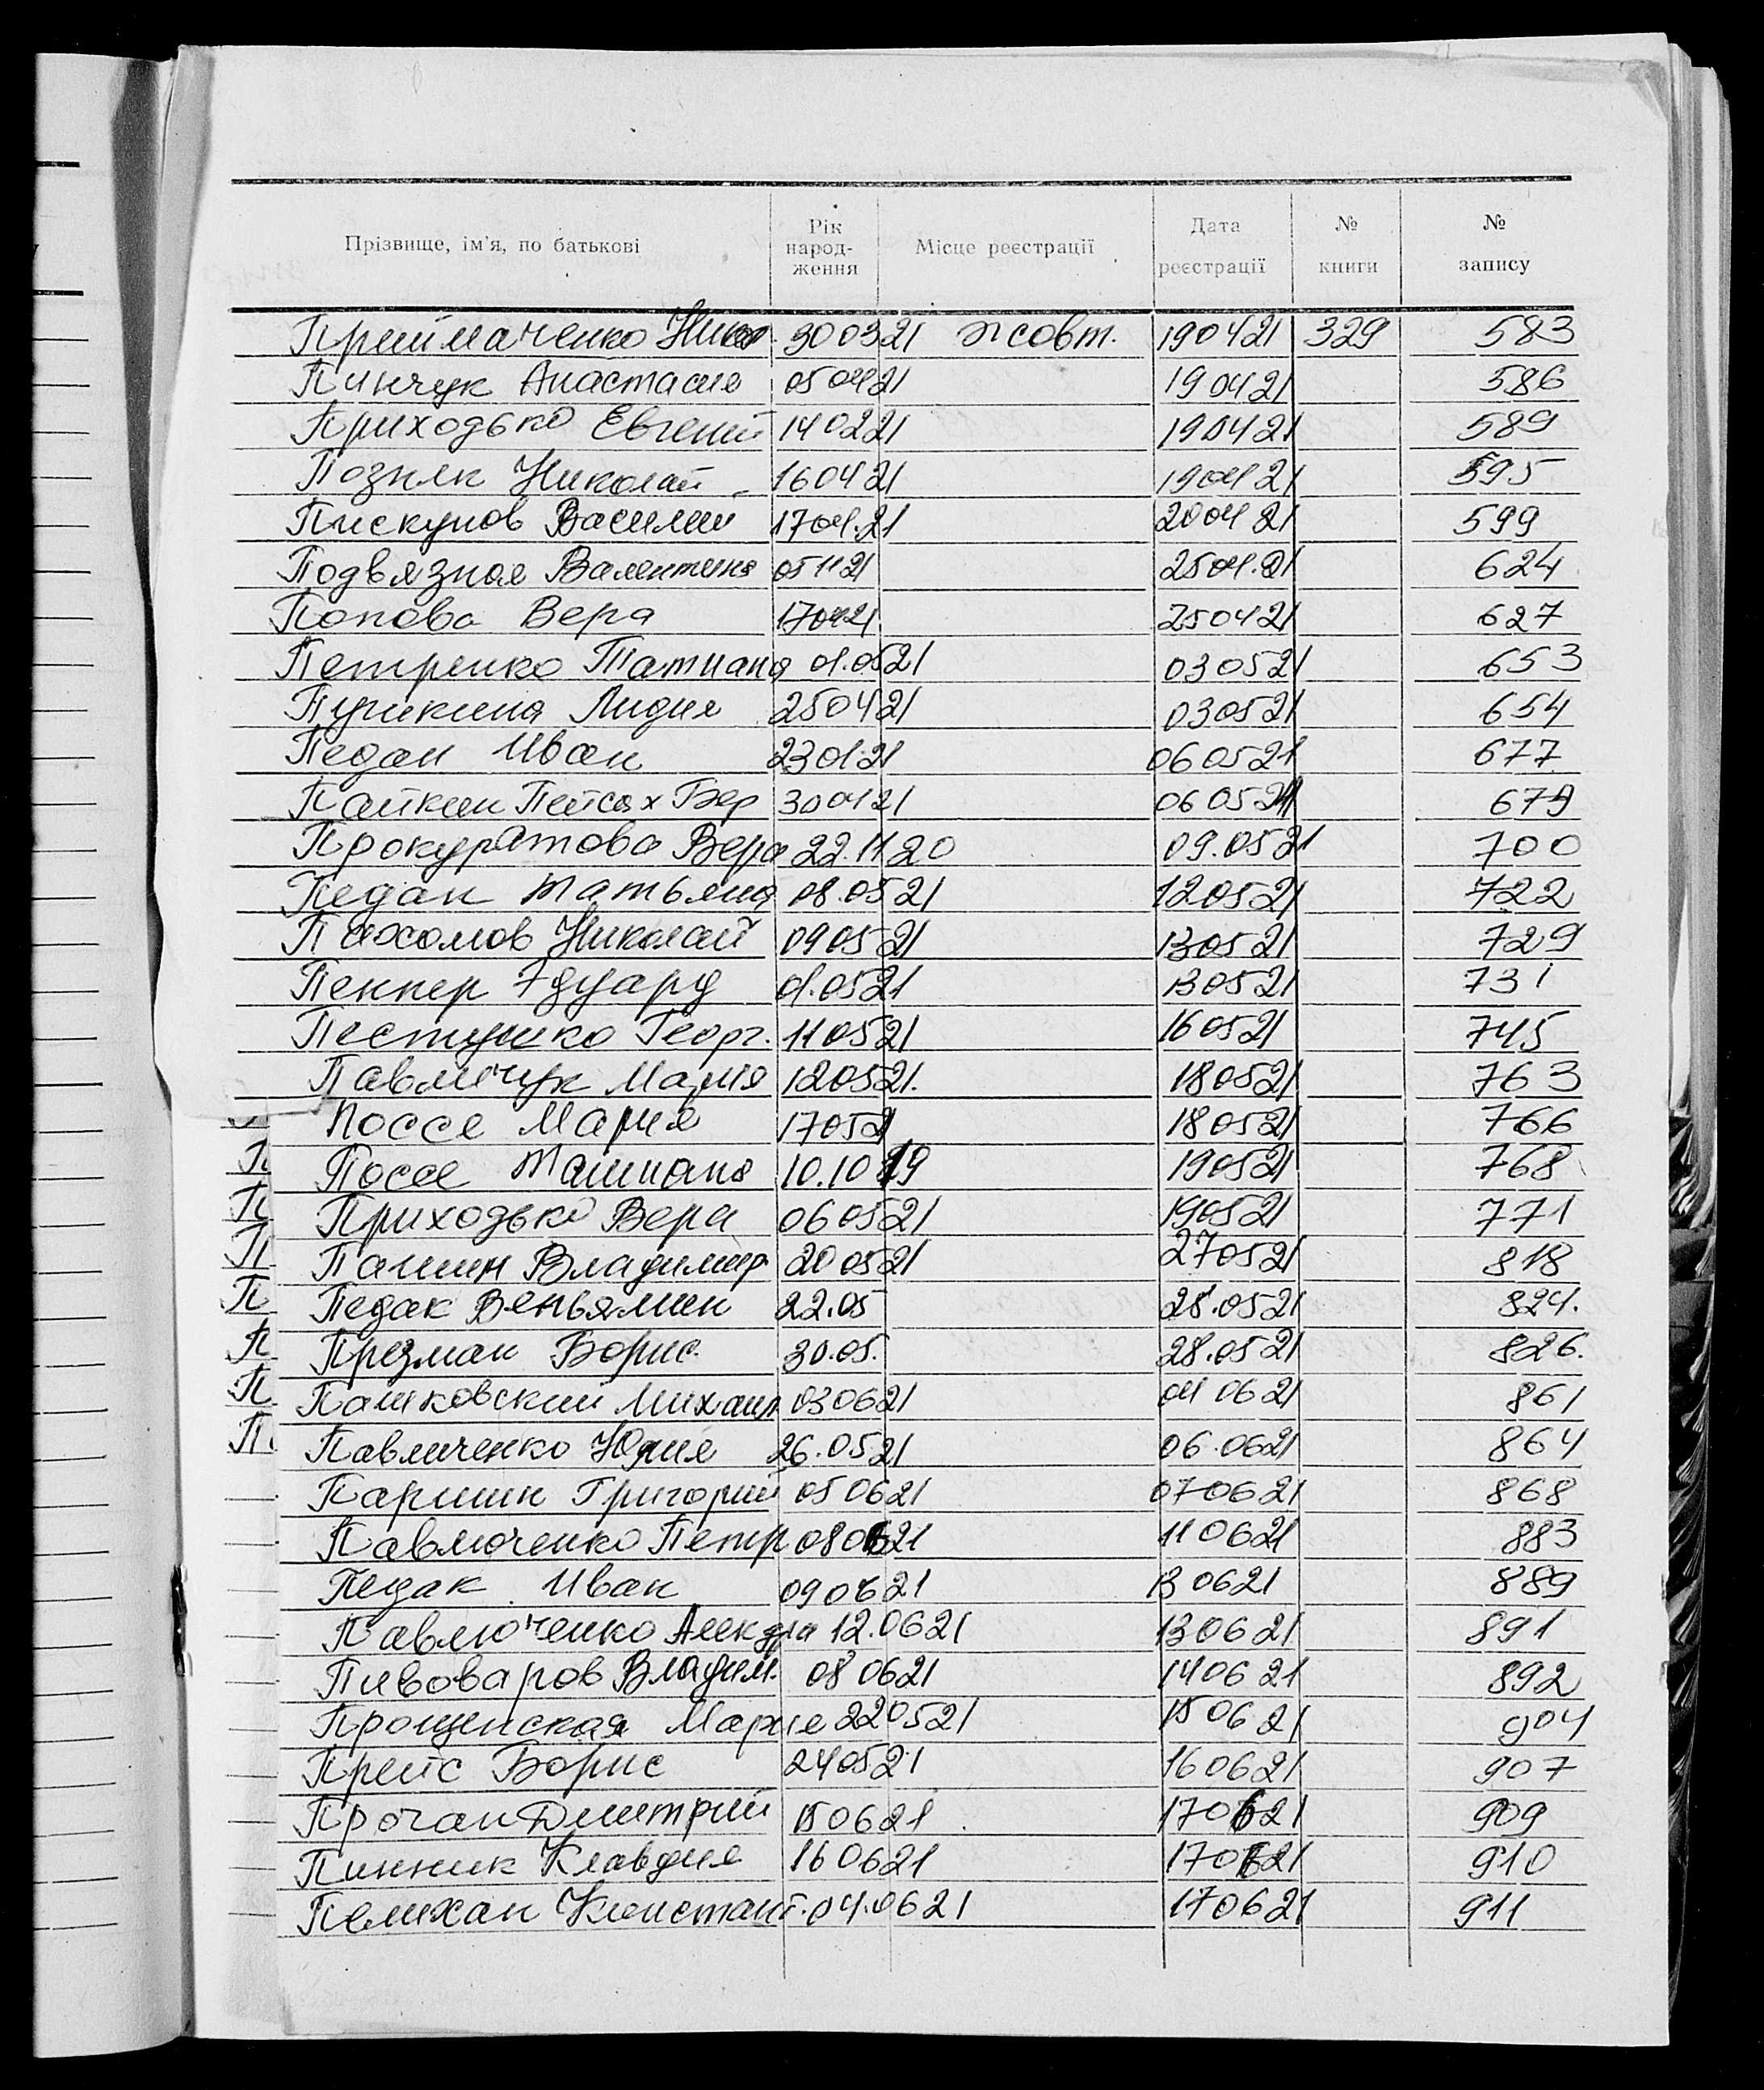 Прізвище, ім'я, по батькові Рік народ-ження Місце реєстрації Дата реєстрації № книги № запису
Прийmаченко Никол. 300321 жовт. 190421 329 583
Пинчук Анастасия 050421 190421 586
Приходько Евгений 140221 190421 589
Позняк Николай 160421 190421 595
Пискунов Василий 1704.21 200421 599
Подвязная Валентина 051121 2504.21 624
Попова Вера 170421. 250421 627
Петренко Татиана 01.0521 030521 653
Пушкина Лидия 250421 030521 654
Педан Иван 230121 060521 677
Пайкин Пейсах Бер 300421 060521 679
Прокуратова Вера 22.11 20 09.0521 700
Педан Татьяна 08.0521 120521 722
Пахомов Николай 090521 130521 729
Пеккер Эдуард 01.0521 130521 731
Пестушко Георг. 110521 160521 745
Павличук Мария 120521. 180521 763
Поссе Мария 170521 180521 766
Поссе Татиана 10.10 19 190521 768
Приходько Вера 060521 190521 771
Панин Владимир 200521 270521 818
Педак Веньямин 22.05 28.0521 824.
Презман Борис. 30.05. 28.0521 826.
Пашковский Михаил 030621 040621 861
Павличенко Юлия 26.0521 06.0621 864
Паршин Григорий 050621 070621 868
Павлюченко Петр 080621 110621 883
Педак Иван 090621 130621 889
Павлюченко Алекдра 12.0621 130621 891
Пивоваров Владим. 080621 140621 892
Прощенская Мария 220521 150621 904
Прейс Борис 240521 160621 907
Прочан Дмитрий 150621 170621 909
Пинник Клавдия 160621 170621 910
Пелихан Констант. 04.0621 170621 911